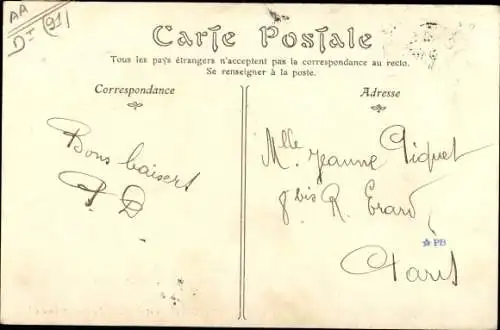 AA
Dt (91)
Carte Postale
Tous les pays étrangers n'acceptent pas la correspondance au recto.
Se renseigner à la poste.
Correspondance
Bons baisers
P. D
Adresse
Mlle Jeanne Piquet
8 bis R. Erard
Paris
PB